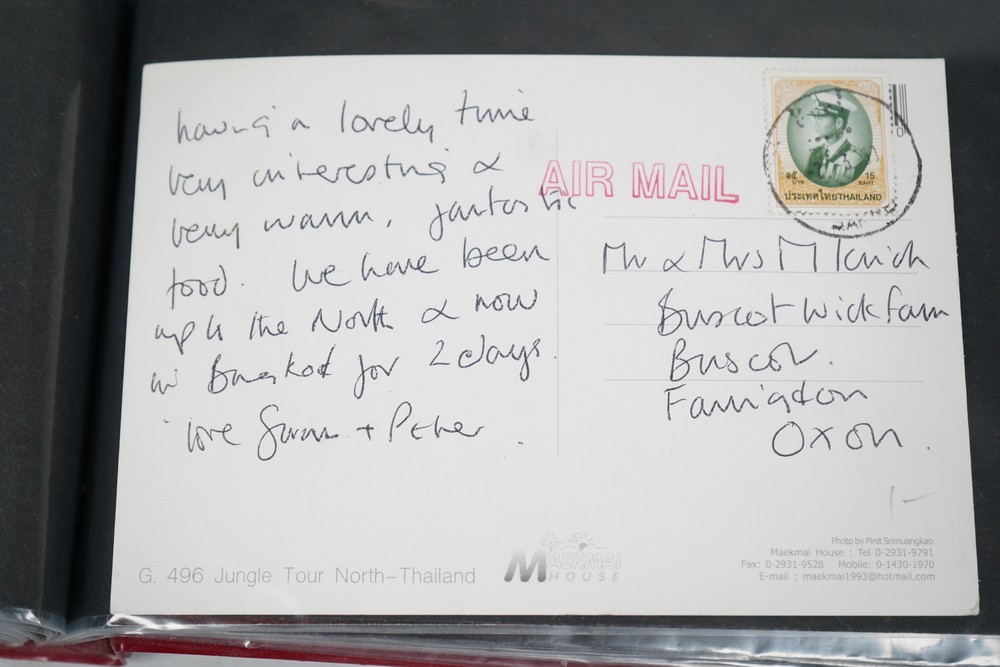 having a lovely time
very interesting &
very warm, fantastic
food. We have been
up to the North & now
in Bangkok for 2 days.
love Susan + Peter.
AIR MAIL
๑๕ บาท 15 BAHT
ประเทศไทย THAILAND
Mr & Mrs M
Buscot Wick Farm
Buscot.
Farringdon
Oxon.
1-
G. 496 Jungle Tour North-Thailand
MAEKMAI
HOUSE
Photo by Pinit Srimuangkao
Maekmai House : Tel 0-2931-9791
Fax: 0-2931-9528 Mobile: 0-1430-1970
E-mail : maekmai1993@hotmail.com